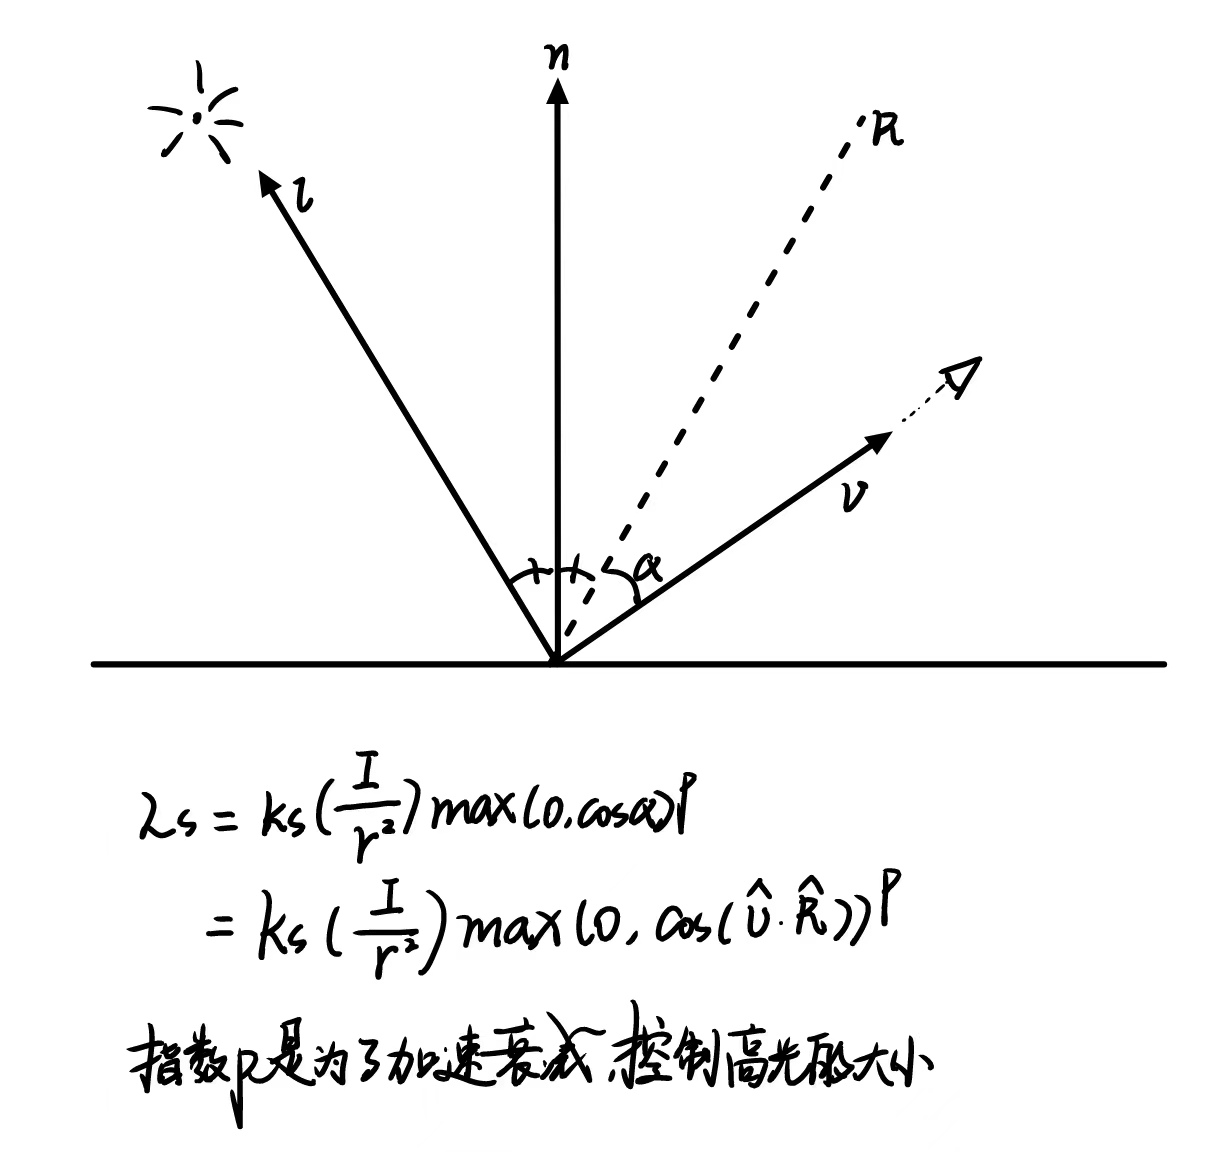 n
R
l
v
α
Ls = ks(I/r²)max(0,cosα)^p
= ks(I/r²)max(0, cos(v̂·R̂))^p
指数p是为了加速衰减,控制高光的大小